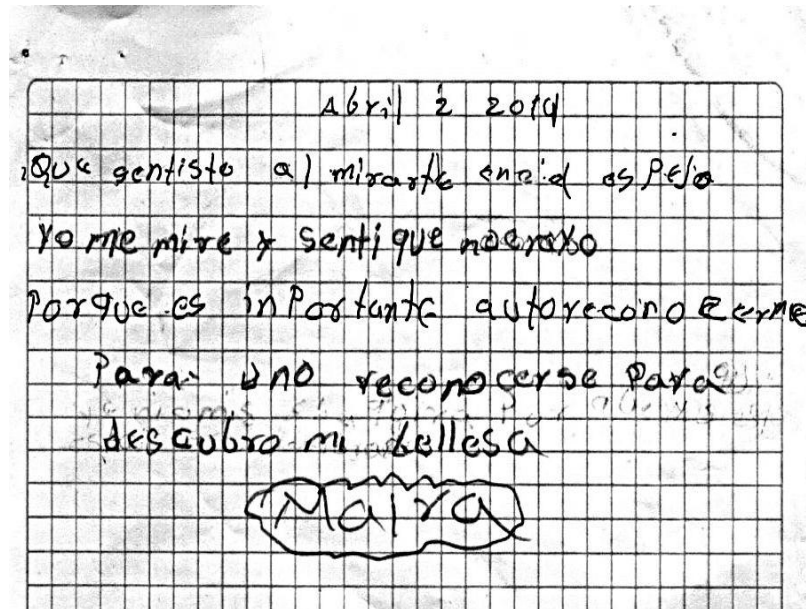 Abril 2 2019
¿Que sentiste al mirarte en el espejo
Yo me mire y senti que no era yo
Porque es inportante autoreconozcerme
Para uno reconocerse Para
descubro mi bellesa
Maira